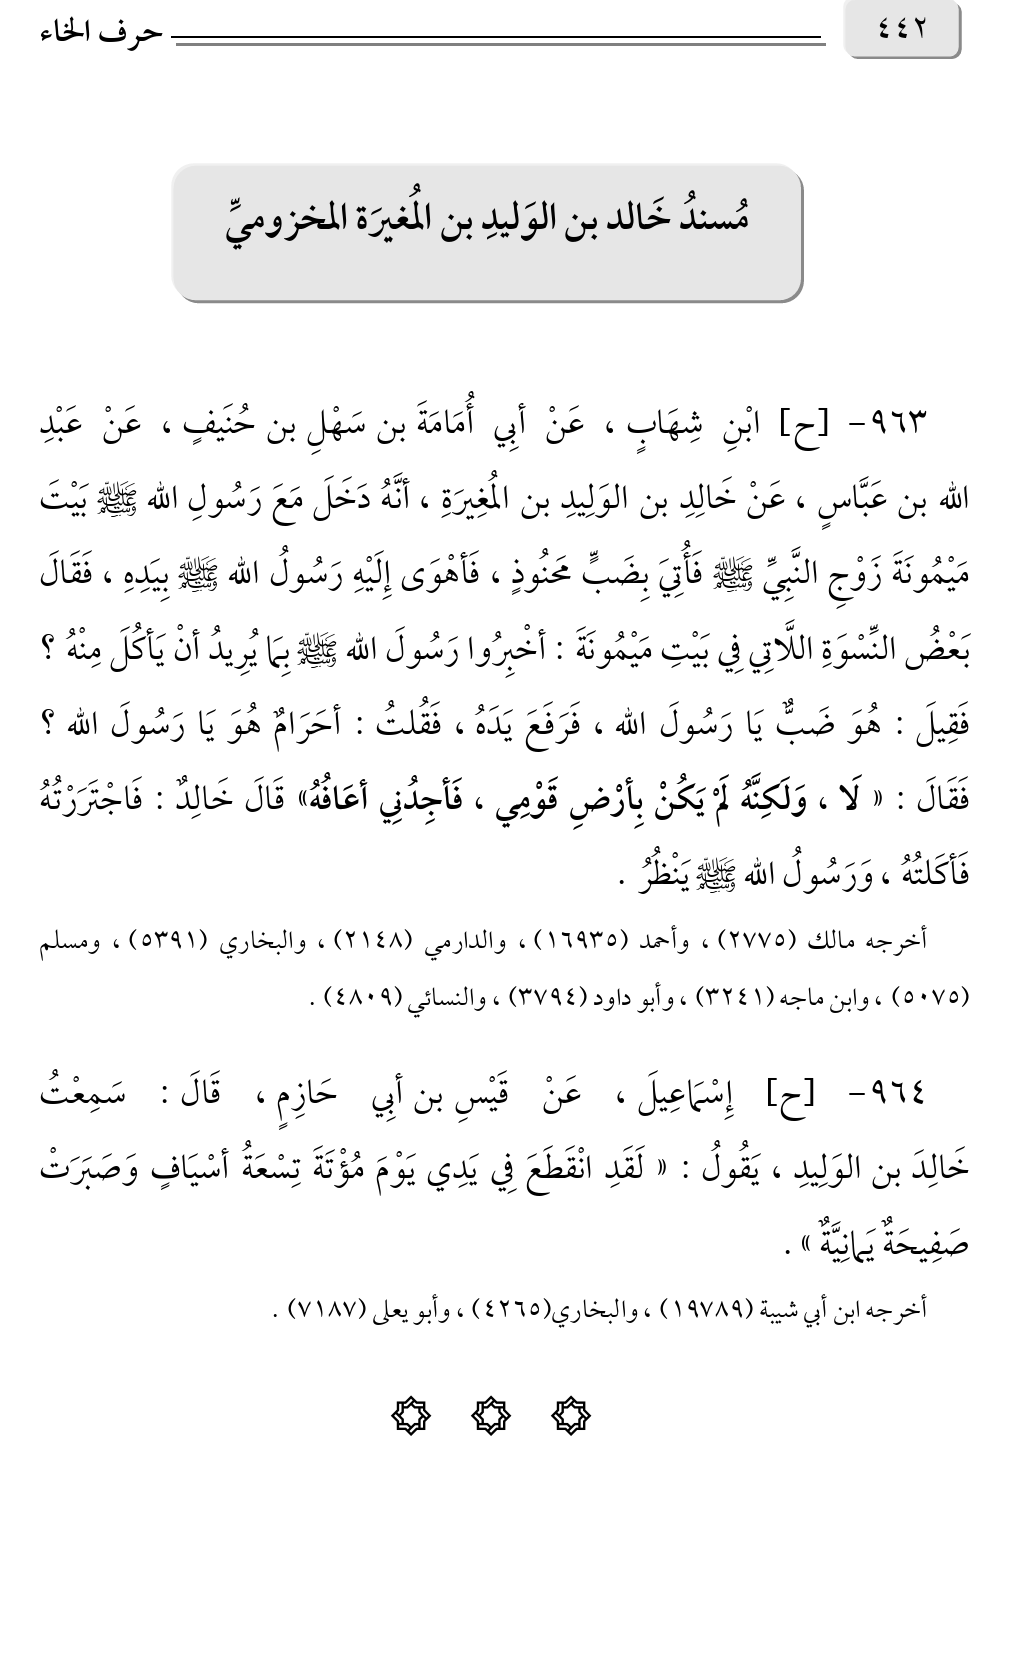 ٤٤٢ حرف الخاء
مُسندُ خَالد بن الوَليدِ بن المُغيرَة المخزوميِّ
٩٦٣- [ح] ابْنِ شِهَابٍ ، عَنْ أبِي أُمَامَةَ بن سَهْلِ بن حُنَيفٍ ، عَنْ عَبْدِ
الله بن عَبَّاسٍ ، عَنْ خَالِدِ بن الوَلِيدِ بن المُغِيرَةِ ، أنَّهُ دَخَلَ مَعَ رَسُولِ الله ﷺ بَيْتَ
مَيْمُونَةَ زَوْجِ النَّبِيِّ ﷺ فَأُتِيَ بِضَبٍّ مَحنُوذٍ ، فَأهْوَى إِلَيْهِ رَسُولُ الله ﷺ بِيَدِهِ ، فَقَالَ
بَعْضُ النِّسْوَةِ اللَّاتِي فِي بَيْتِ مَيْمُونَةَ : أخْبِرُوا رَسُولَ الله ﷺ بِمَا يُرِيدُ أنْ يَأكُلَ مِنْهُ ؟
فَقِيلَ : هُوَ ضَبٌّ يَا رَسُولَ الله ، فَرَفَعَ يَدَهُ ، فَقُلتُ : أحَرَامٌ هُوَ يَا رَسُولَ الله ؟
فَقَالَ : « لَا ، وَلَكِنَّهُ لَمْ يَكُنْ بِأرْضِ قَوْمِي ، فَأجِدُنِي أعَافُهُ» قَالَ خَالِدٌ : فَاجْتَرَرْتُهُ
فَأكَلتُهُ ، وَرَسُولُ الله ﷺ يَنْظُرُ .
أخرجه مالك (٢٧٧٥) ، وأحمد (١٦٩٣٥) ، والدارمي (٢١٤٨) ، والبخاري (٥٣٩١) ، ومسلم
(٥٠٧٥) ، وابن ماجه (٣٢٤١) ، وأبو داود (٣٧٩٤) ، والنسائي (٤٨٠٩) .
٩٦٤- [ح] إِسْمَاعِيلَ ، عَنْ قَيْسِ بن أبِي حَازِمٍ ، قَالَ : سَمِعْتُ
خَالِدَ بن الوَلِيدِ ، يَقُولُ : « لَقَدِ انْقَطَعَ فِي يَدِي يَوْمَ مُؤْتَةَ تِسْعَةُ أسْيَافٍ وَصَبَرَتْ
صَفِيحَةٌ يَمانِيَّةٌ » .
أخرجه ابن أبي شيبة (١٩٧٨٩) ، والبخاري(٤٢٦٥) ، وأبو يعلى (٧١٨٧) .